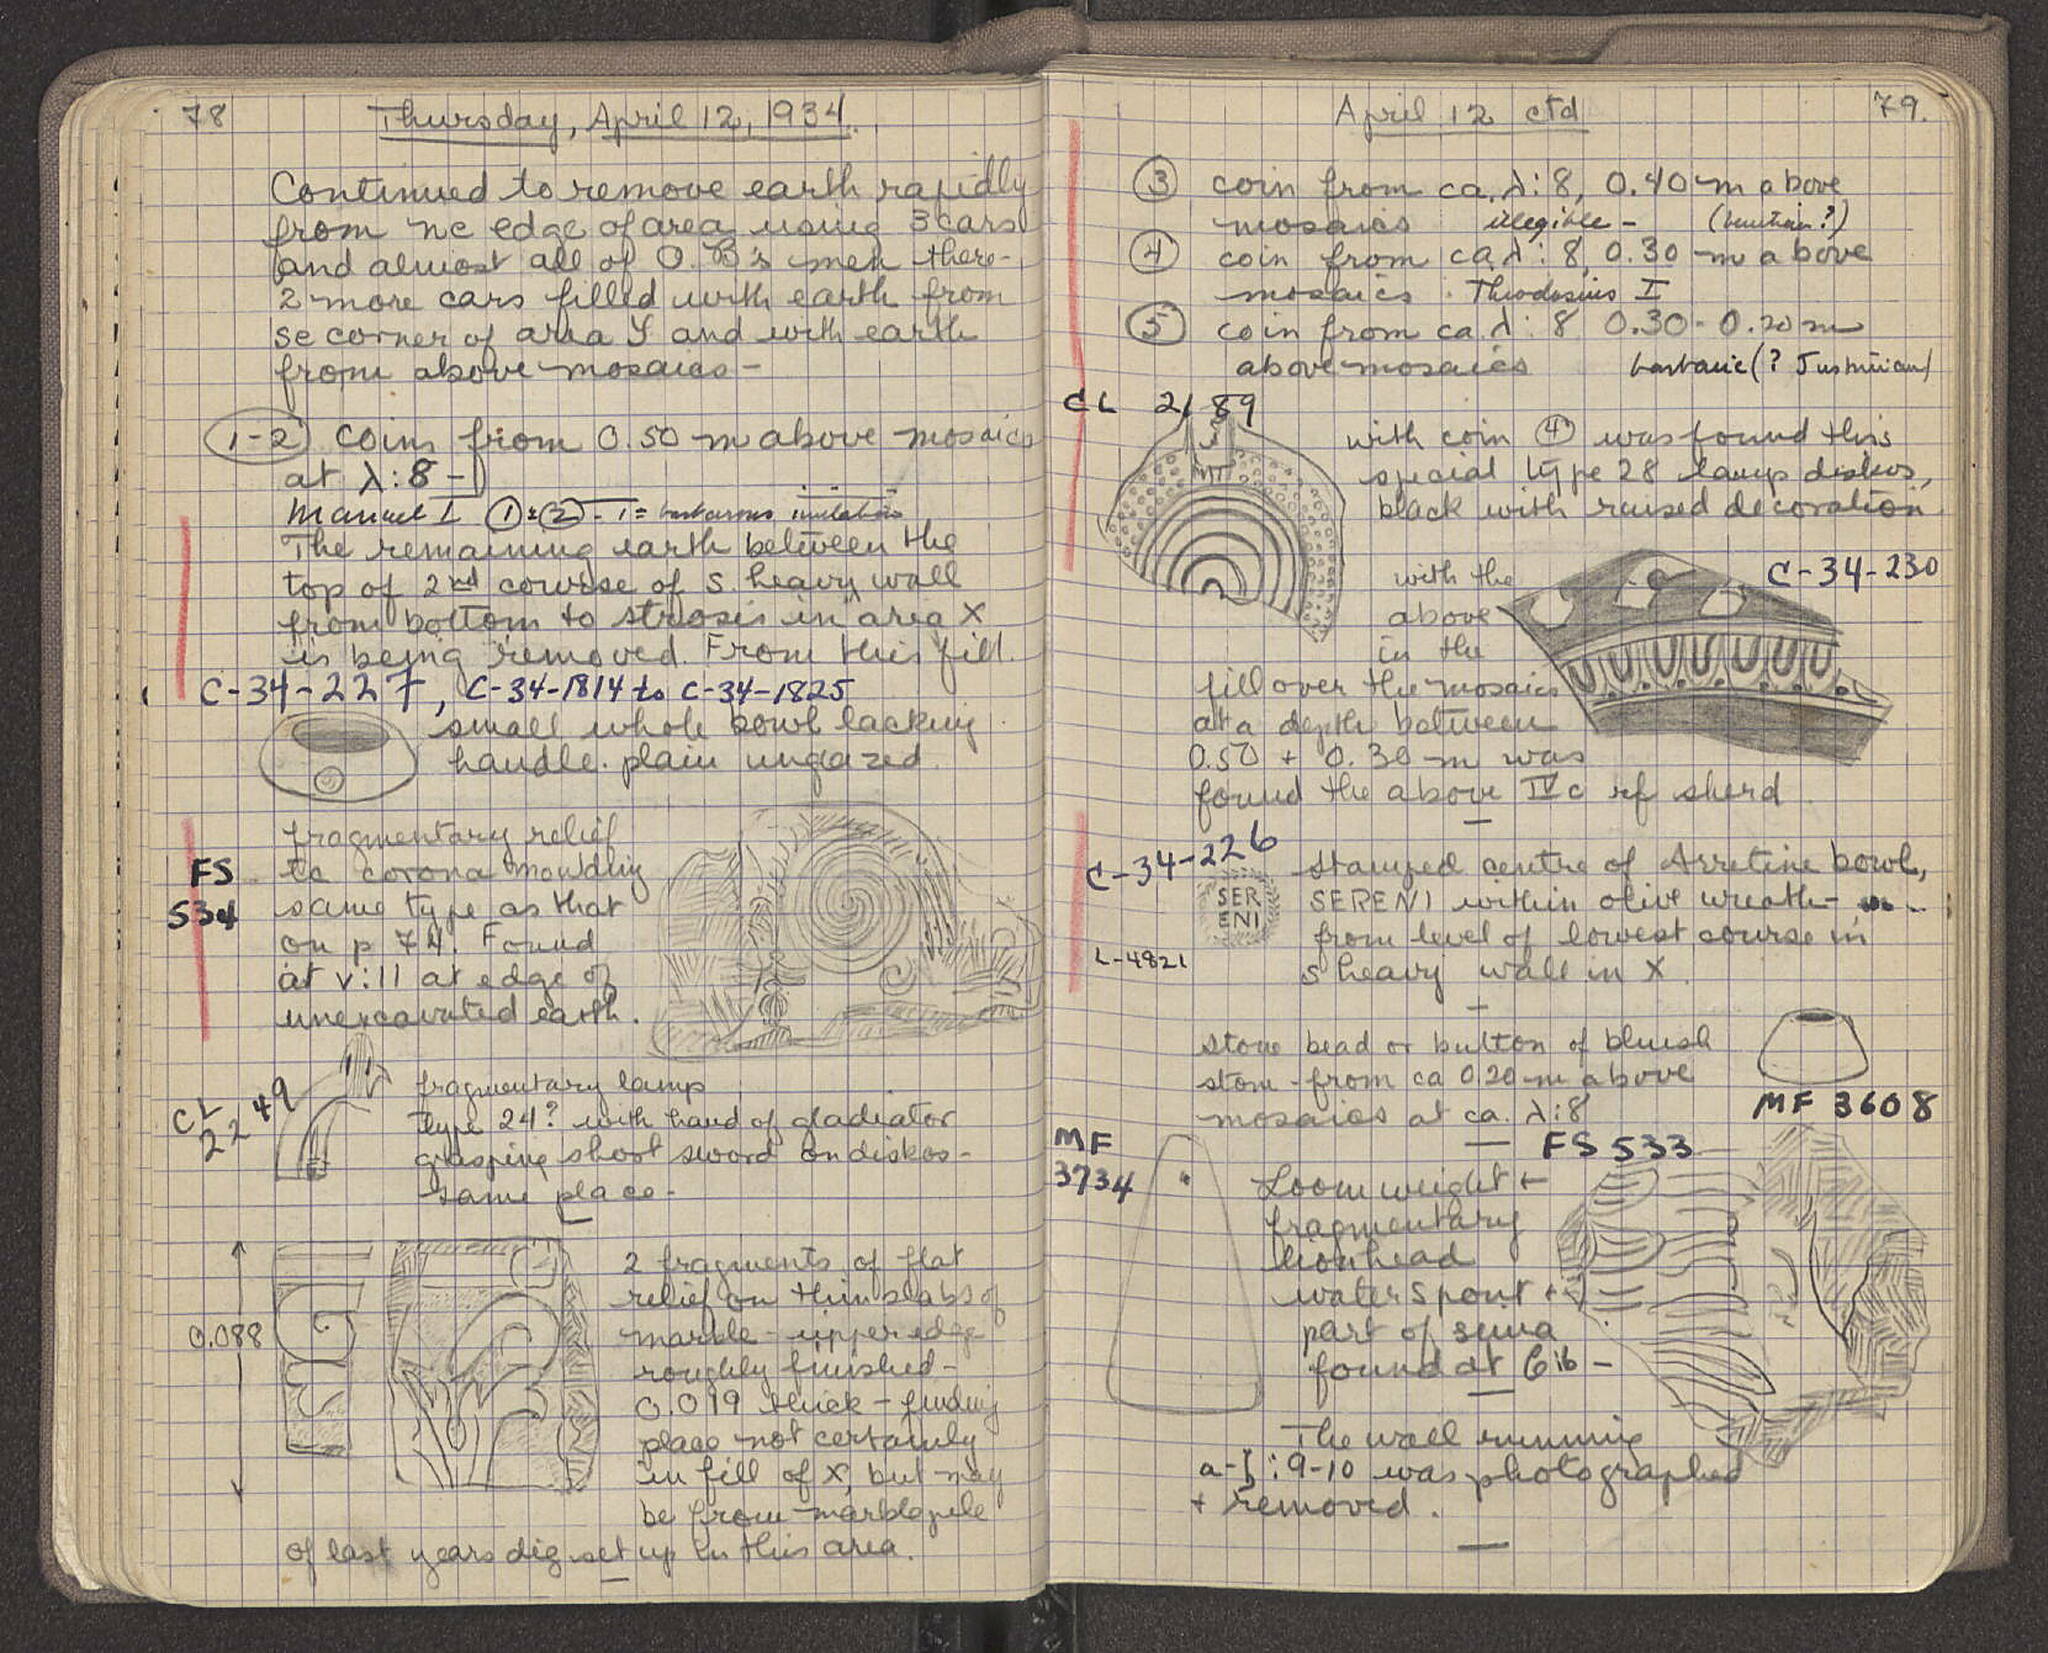 78
Thursday, April 12, 1934.
Continued to remove earth rapidly
from ne edge of area using 3 cars
and almost all of O. B's men there-
2 more cars filled with earth from
se corner of area Y and with earth
from above mosaics -
1-2 coins from 0.50 m above mosaics
at λ:8 -
Manuel I ① + ② - 1 = barbarous imitation
The remaining earth between the
top of 2nd course of s. heavy wall
from bottom to strosis in area X
is being removed. From this fill.
C-34-227, C-34-1814 to C-34-1825
small whole bowl lacking
handle. plain unglazed
FS
534
fragmentary relief
tc corona moulding
same type as that
on p 74. Found
at v:11 at edge of
unexcavated earth.
CL
2249
fragmentary lamp
type 24? with hand of gladiator
grasping short sword on diskos -
same place -
0.088
2 fragments of flat
relief on thin slabs of
marble - upper edge
roughly finished -
0.019 thick - finding
place not certainly
in fill of X, but may
be from marble pile
of last years dig set up in this area.
April 12 ctd
79.
③ coin from ca. λ:8, 0.40 m above
mosaics illegible -
④ coin from ca λ: 8, 0.30 m above
mosaics. Theodosius I
⑤ coin from ca λ: 8 0.30 - 0.20 m
above mosaics barbaric (? Justinian)
CL 2189
with coin ④ was found this
special type 28 lamp diskos,
black with raised decoration
C-34-230
with the
above
in the
fill over the mosaics
at a depth between
0.50 + 0.30 m was
found the above IVc rf sherd
C-34-226
SER
ENI
L-4821
stamped centre of Arretine bowl,
SERENI within olive wreath -
from level of lowest course in
s heavy wall in X.
stone bead or button of bluish
stone - from ca 0.20 m above
mosaics at ca. λ:8
MF 3608
MF
3734
FS 533
Loom weight +
fragmentary
lionhead
waterspout +
part of sima
found at
The wall running
:9-10 was photographed
+ removed.